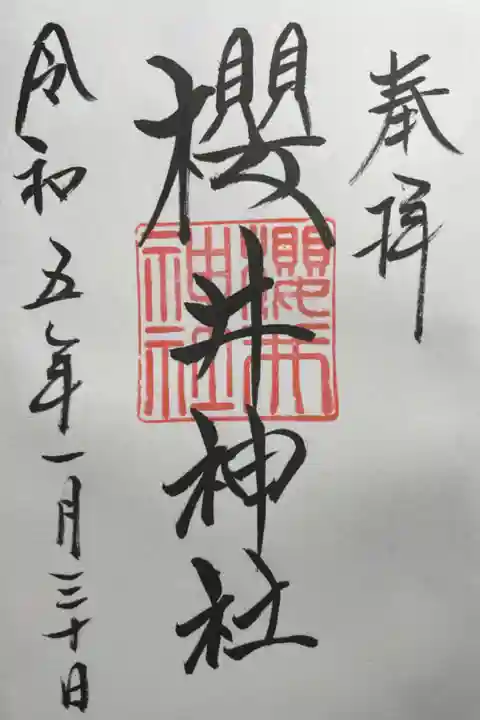 奉拝
櫻井神社
櫻井
神社
令和五年一月三十日